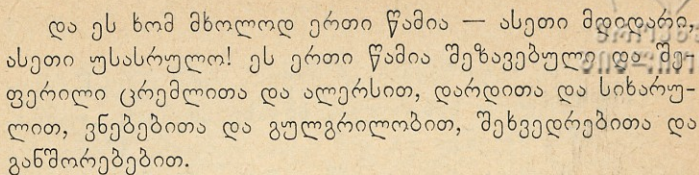 და ეს ხომ მხოლოდ ერთი წამია — ასეთი მდიდარი,
ასეთი უსასრულო! ეს ერთი წამია შეზავებული და შე-
ფერილი ცრემლითა და ალერსით, დარდითა და სიხარუ-
ლით, ვნებებითა და გულგრილობით, შეხვედრებითა და
განშორებებით.